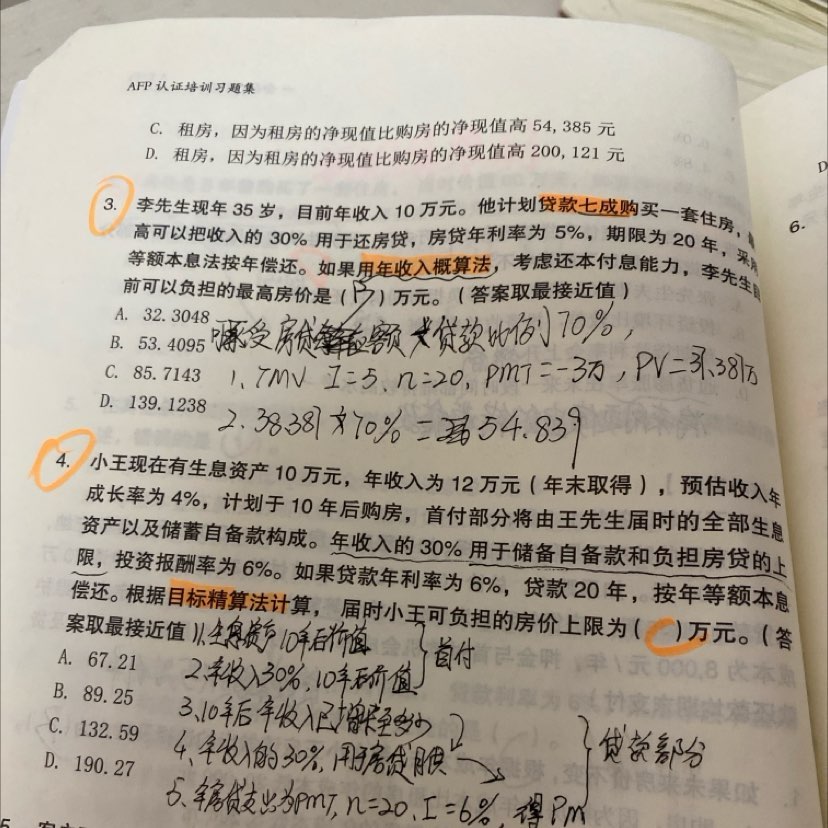 AFP 认证培训习题集
C. 租房，因为租房的净现值比购房的净现值高 54, 385 元
D. 租房，因为租房的净现值比购房的净现值高 200, 121 元
3. 李先生现年 35 岁，目前年收入 10 万元。他计划贷款七成购买一套住房，最
高可以把收入的 30% 用于还房贷，房贷年利率为 5%，期限为 20 年，采用
等额本息法按年偿还。如果用年收入概算法，考虑还本付息能力，李先生目
前可以负担的最高房价是（ ）万元。（答案取最接近值）
A. 32.3048
B. 53.4095
C. 85.7143
D. 139.1238
房贷 额 贷款比例70%，
1、TMV I=5, n=20, PMT=-3万, PV=37.387万
2. 38.387 70% = 54.839
4. 小王现在有生息资产 10 万元，年收入为 12 万元（年末取得），预估收入年
成长率为 4%，计划于 10 年后购房，首付部分将由王先生届时的全部生息
资产以及储蓄自备款构成。年收入的 30% 用于储备自备款和负担房贷的上
限，投资报酬率为 6%。如果贷款年利率为 6%，贷款 20 年，按年等额本息
偿还。根据目标精算法计算，届时小王可负担的房价上限为（ ）万元。（答
案取最接近值）
1.生息资产10年后价值
2.年收入30%，10年后价值
首付
3、10年后年收入已增长至多少
4、年收入的30%，用于房贷
5、年房贷支出为PMT, n=20, I=6%, 得
贷款部分
A. 67.21
B. 89.25
C. 132.59
D. 190.27
6.